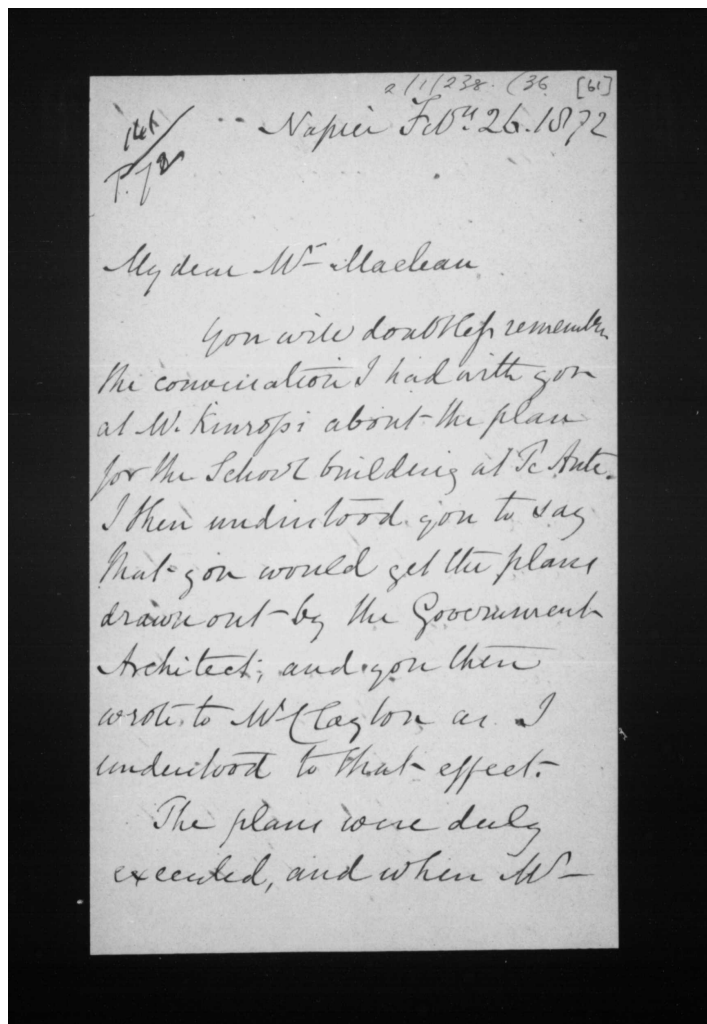 2/1/238. (36 [61]
Napier Feby. 26. 1872
My dear Mr Maclean
You will doubtless remember
the conversation I had with you
at Mr. Kinross's about the plan
for the School building at Te Aute.
I then understood you to say
that you would get the plans
drawn out by the Government
Architect; and you then
wrote to Mr Clayton as I
understood to that effect.
The plans were duly
executed, and when Mr